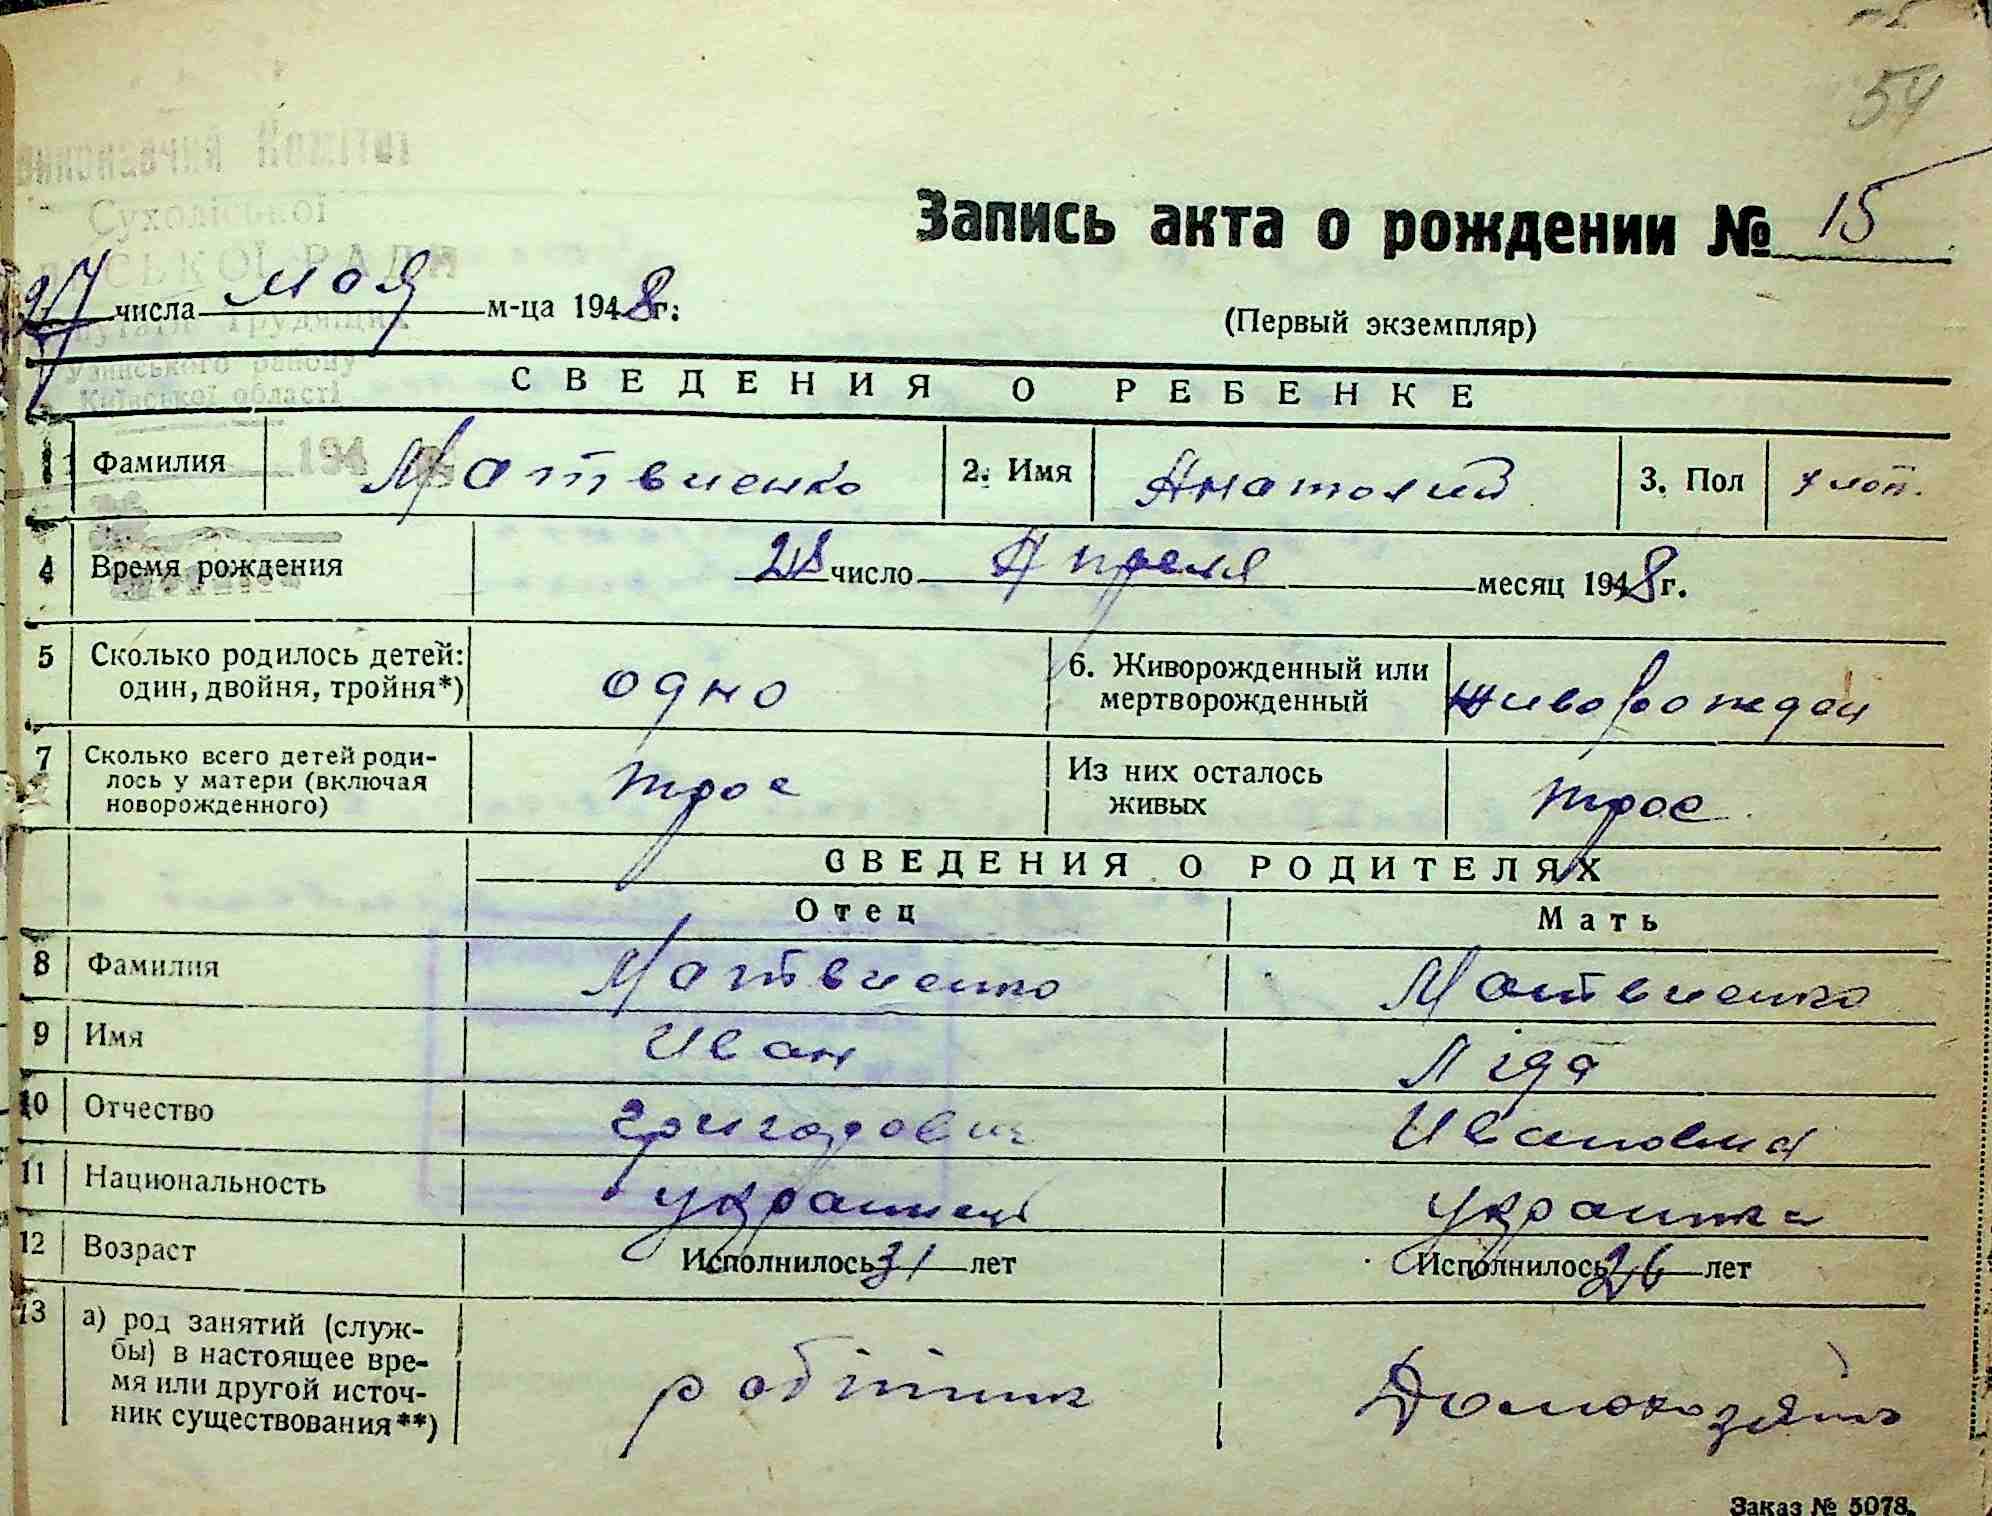 54
Виконавчий Комітет
Сухоліської
СІЛЬСЬКОЇ РАДИ
депутатів Трудящих
Узинського району
Київської області
194
Запись акта о рождении № 15
27 числа мая м-ца 1948 г.
(Первый экземпляр)
СВЕДЕНИЯ О РЕБЕНКЕ
1 Фамилия Матвиенко 2. Имя Анатолий 3. Пол хлоп.
4 Время рождения 28 число Апреля месяц 1948 г.
5 Сколько родилось детей: один, двойня, тройня*) одно 6. Живорожденный или мертворожденный живорожден
7 Сколько всего детей роди-
лось у матери (включая
новорожденного) трое Из них осталось живых трое
СВЕДЕНИЯ О РОДИТЕЛЯХ
Отец Мать
8 Фамилия Матвиенко Матвиенко
9 Имя Иван Ліда
10 Отчество Григорович Ивановна
11 Национальность украинец украинка
12 Возраст Исполнилось 31 лет Исполнилось 26 лет
13 а) род занятий (служ-
бы) в настоящее вре-
мя или другой источ-
ник существования**) робітник
Заказ № 5078.